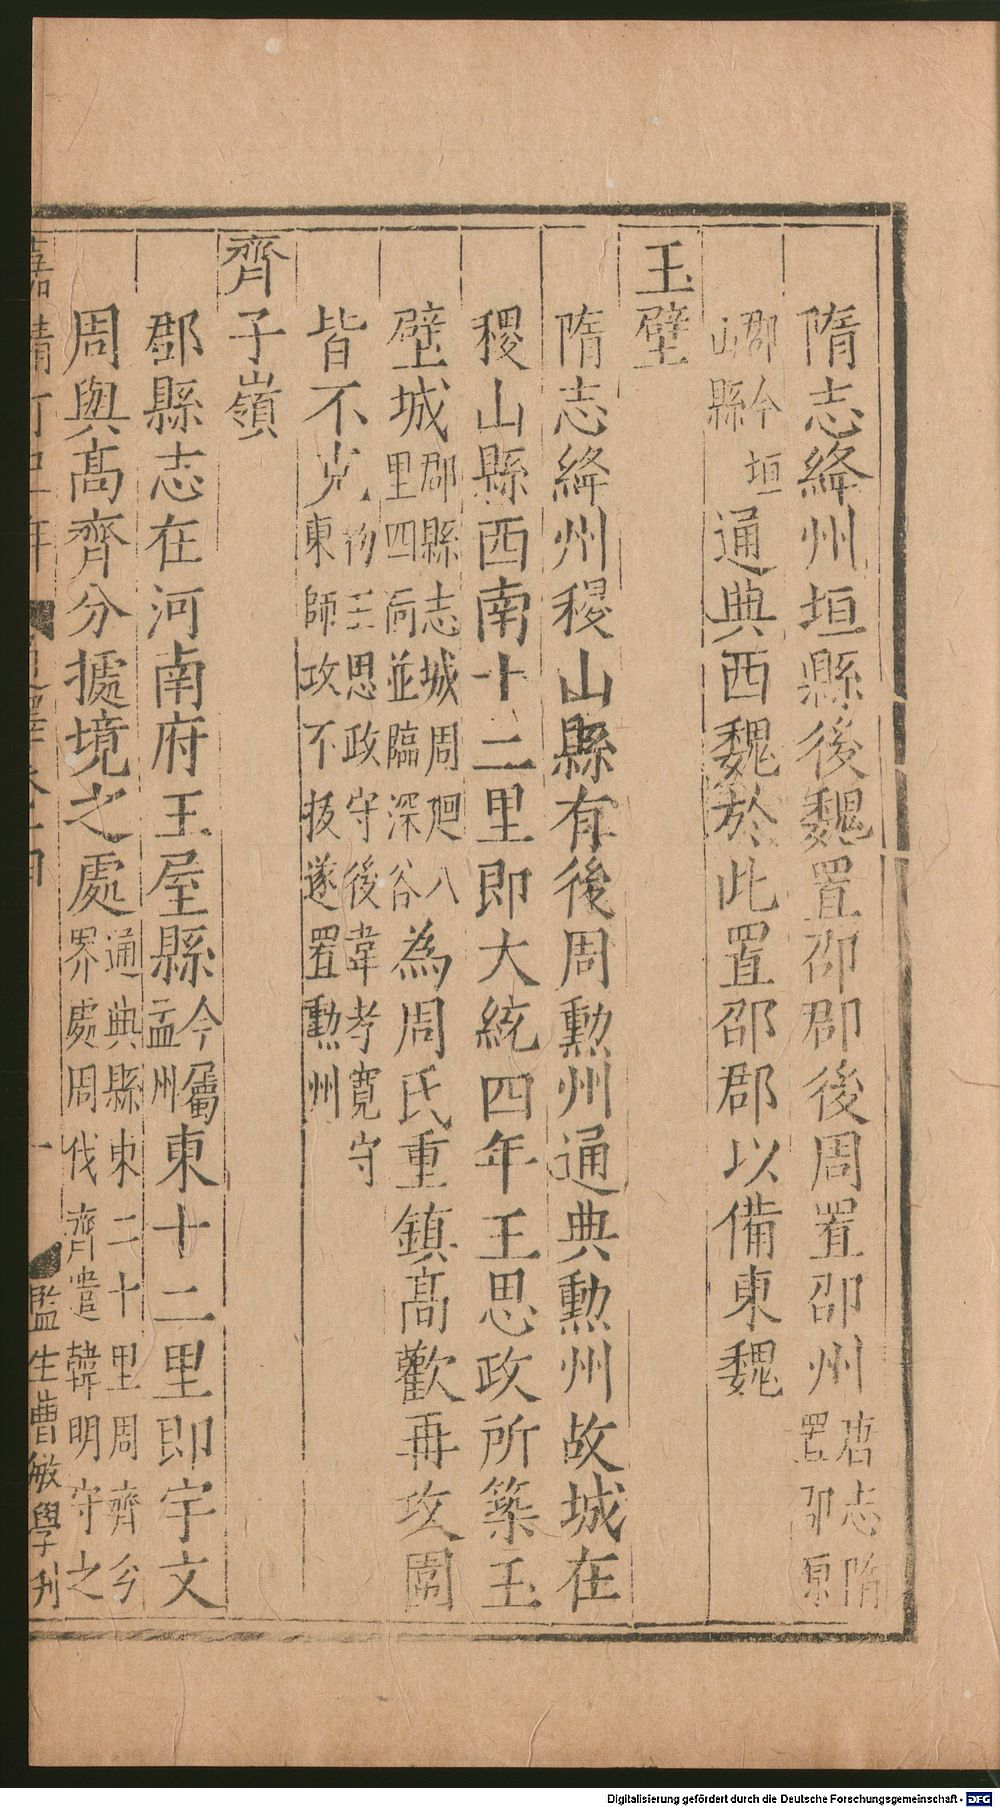 隋志絳州垣縣後魏置邵郡後周置邵州唐志隋置邵原
郡今垣山縣通典西魏於此置邵郡以備東魏
玉壁
隋志絳州稷山縣有後周勲州通典勲州故城在
稷山縣西南十二里即大統四年王思政所築玉
壁城郡縣志城周廻八里四面並臨深谷為周氏重鎮高歡再攻圍
皆不克初王思政守後韋孝寛守東師攻不拔遂置勲州
齊子嶺
郡縣志在河南府王屋縣今屬孟州東十二里即宇文
周與高齊分據境之處通典縣東二十里周齊分界處周伐齊遣韓明守之
嘉靖 年
監生曹敏學刋
Digitalisierung gefördert durch die Deutsche Forschungsgemeinschaft - DFG